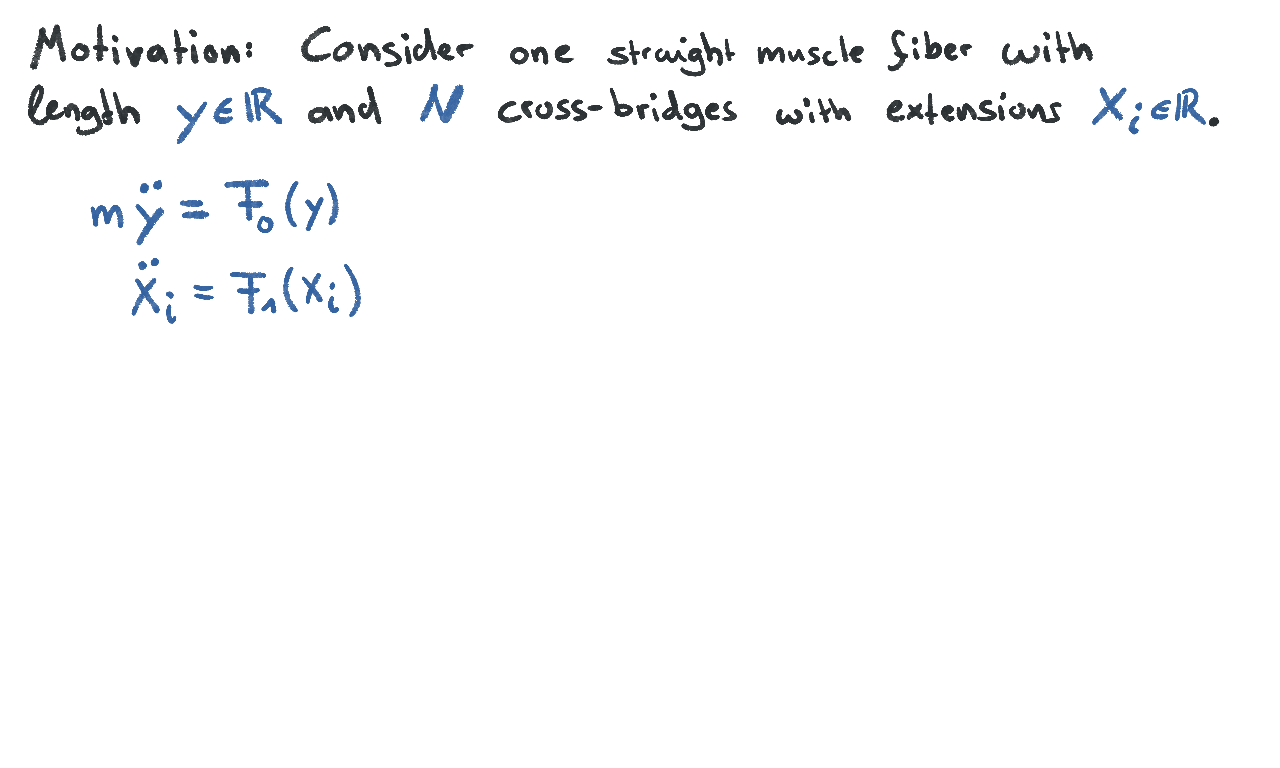 Motivation: Consider one straight muscle fiber with
length y ∈ ℝ and N cross-bridges with extensions Xᵢ ∈ ℝ.
m ÿ = F₀(y)
Ẍᵢ = F₁(Xᵢ)